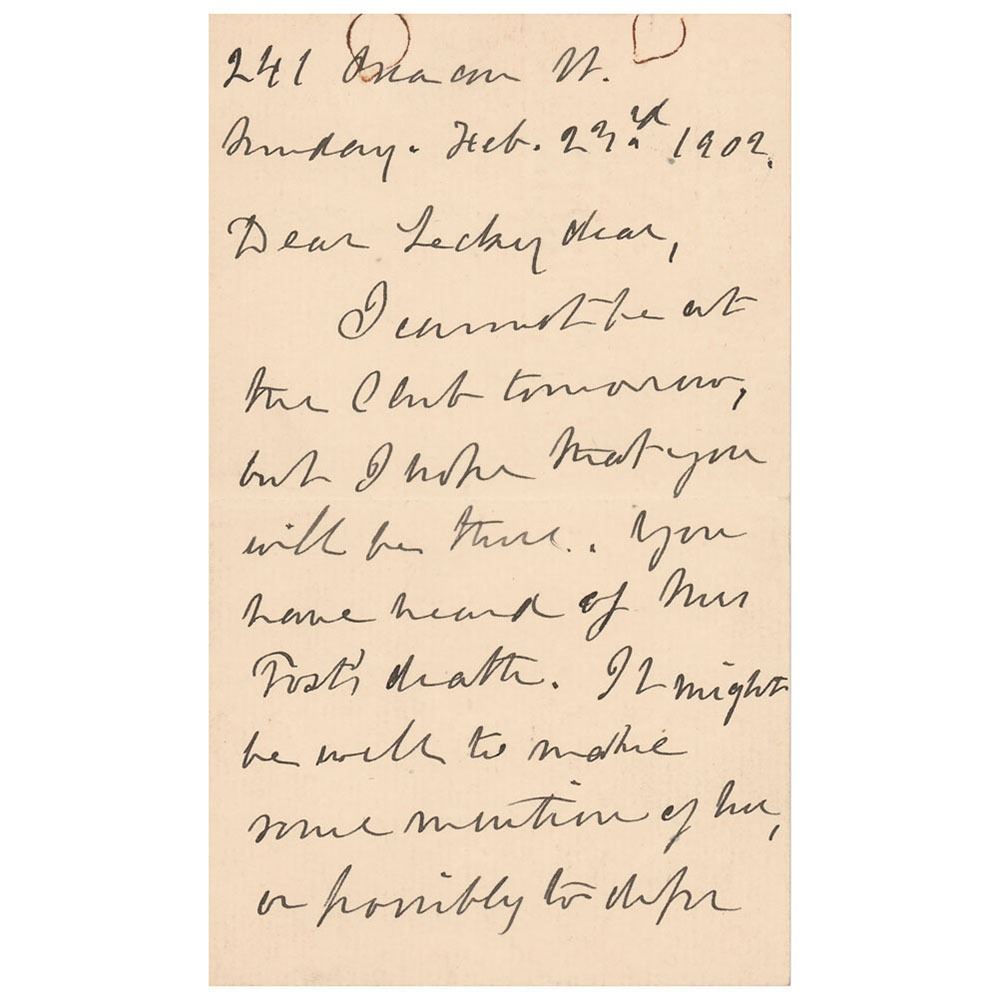 241 Beacon St.
Sunday. Feb. 23rd 1902.
Dear Lecky dear,
I cannot be at
the Club tomorrow,
but I hope that you
will be there. You
have heard of Mrs
death. It might
be well to make
some mention of her,
or possibly to defer